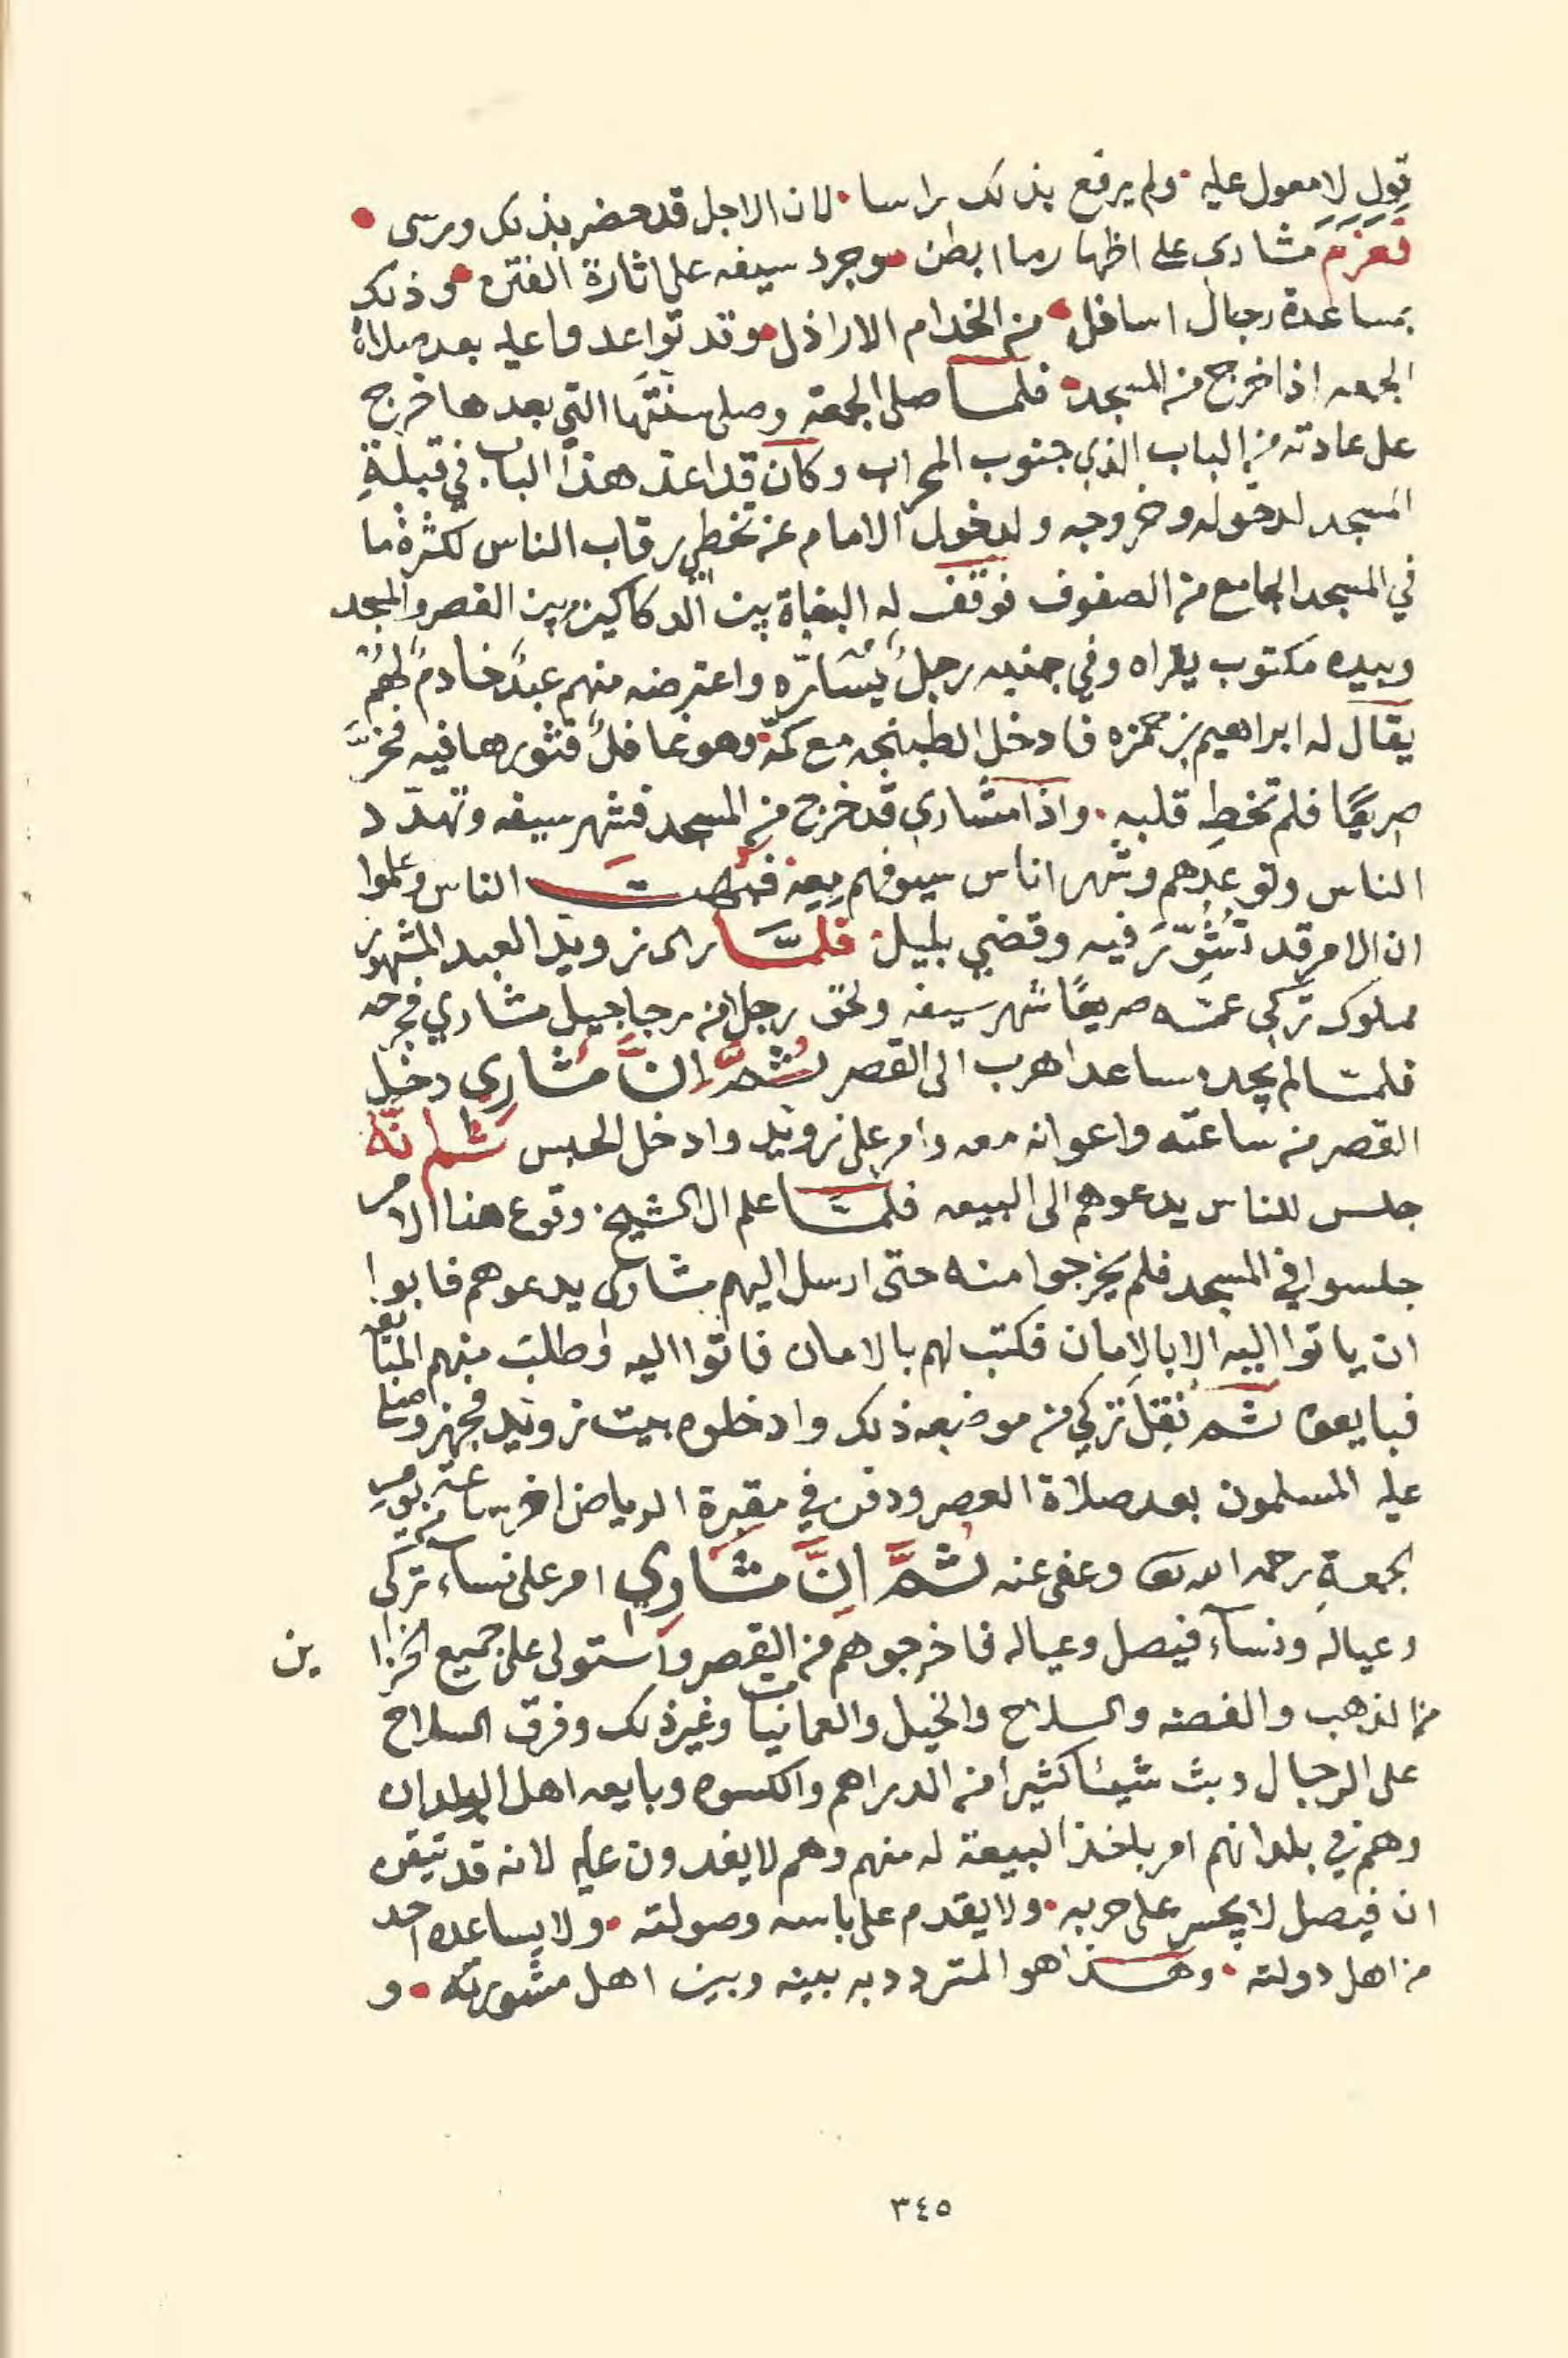 قول لا معول عليه ولم يرفع بذلك راسا لان الاجل قد حضر بذلك ورسى
فعزم مشاري على اظهار ما ابطن وجرد سيفه على اثارة الفتن وذلك
بمساعدة رجال اسافل من الخدام الاراذل وقد تواعدوا عليه بعد صلاة
الجمعه اذا خرج من المسجد فلما صلى الجمعة وصلى سنتها التي بعدها خرج
على عادته من الباب الذي جنوب المحراب وكان قد اعد هذا الباب في قبلة
المسجد لدخوله وخروجه ولدخول الامام عن تخطي رقاب الناس لكثرة ما
في المسجد الجامع من الصفوف فوقف له البغاة بين الدكاكين بين القصر والمسجد
وبيده مكتوب يقراه وفي جنبه رجلٌ يسارّه واعترضه منهم عبدٌ خادمٌ لهم
يقال له ابراهيم بن حمزه فادخل الطبنجه مع كمّه وهو غافلٌ فثورها فيه فخرَّ
صريعًا فلم تخطِ قلبه واذا مشاري قد خرج من المسجد فشهر سيفه وتهدّد
الناس وتوعدهم وشهر اناس سيوفهم معه فبُهِتَ الناس وعلموا
ان الامر قد تُشُوِّرَ فيه وقضي بليل فلمَّا راى زويد العبد المشهور
مملوك تركي عمّه صريعًا شهر سيفه ولحق رجلا من رجاجيل مشاري فجرحه
فلمّا لم يجد مساعدا هرب الى القصر ثُمَّ اِنَّ مشاري دخل
القصر من ساعته واعوانه معه وامر على زويد وادخل الحبس ثُم انَّه
جلس للناس يدعوهم الى البيعه فلمّا علم ال الشيخ وقوع هذا الامر
جلسوا في المسجد فلم يخرجوا منه حتى ارسل اليهم مشاري يدعوهم فابوا
ان ياتوا اليه الا بالامان فكتب لهم بالامان فاتوا اليه وطلب منهم المبايعه
فبايعوه ثم نُقِلَ تركي من موضعه ذلك وادخلوه بيت زويد فجهز وصلى
عليه المسلمون بعد صلاة العصر ودفن في مقبرة الرياض اخر ساعة من يوم
الجمعةِ رحمه الله تعالى وعفى عنه ثُمَّ اِنَّ مشاري امر على نساء تركي
وعياله ونساء فيصل وعياله فاخرجوهم من القصر واستولى على جميع الخزا ين
من الذهب والفضه والسلاح والخيل والعمانيات وغير ذلك وفرق السلاح
على الرجال وبث شيئا كثيرا من الدراهم والكسوه وبايعه اهل البلدان
وهم في بلدانهم امر باخذ البيعة له منهم وهم لا يفدون عليه لانه قد تيقن
ان فيصل لا يجسر على حربه ولا يقدم على باسه وصولته ولا يساعده احد
من اهل دولته وهذا هو المتردد به بينه وبين اهل مشورته و
٣٤٥